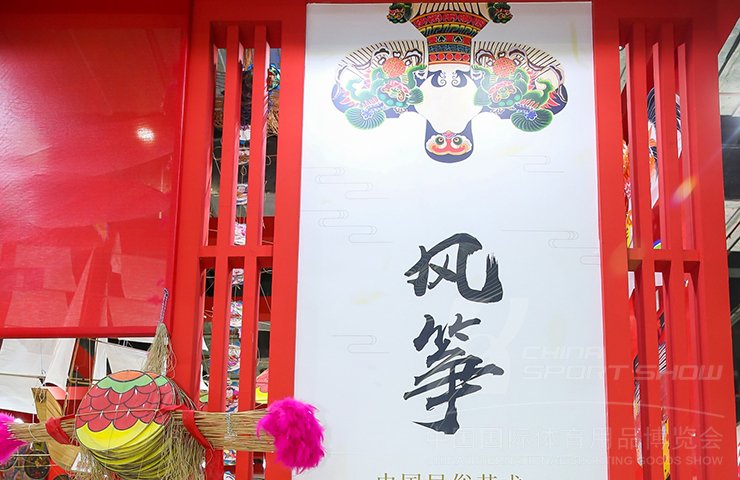 风
筝
中国民俗艺术
CHINA
SPORT SHOW
中国国际体育用品博览会